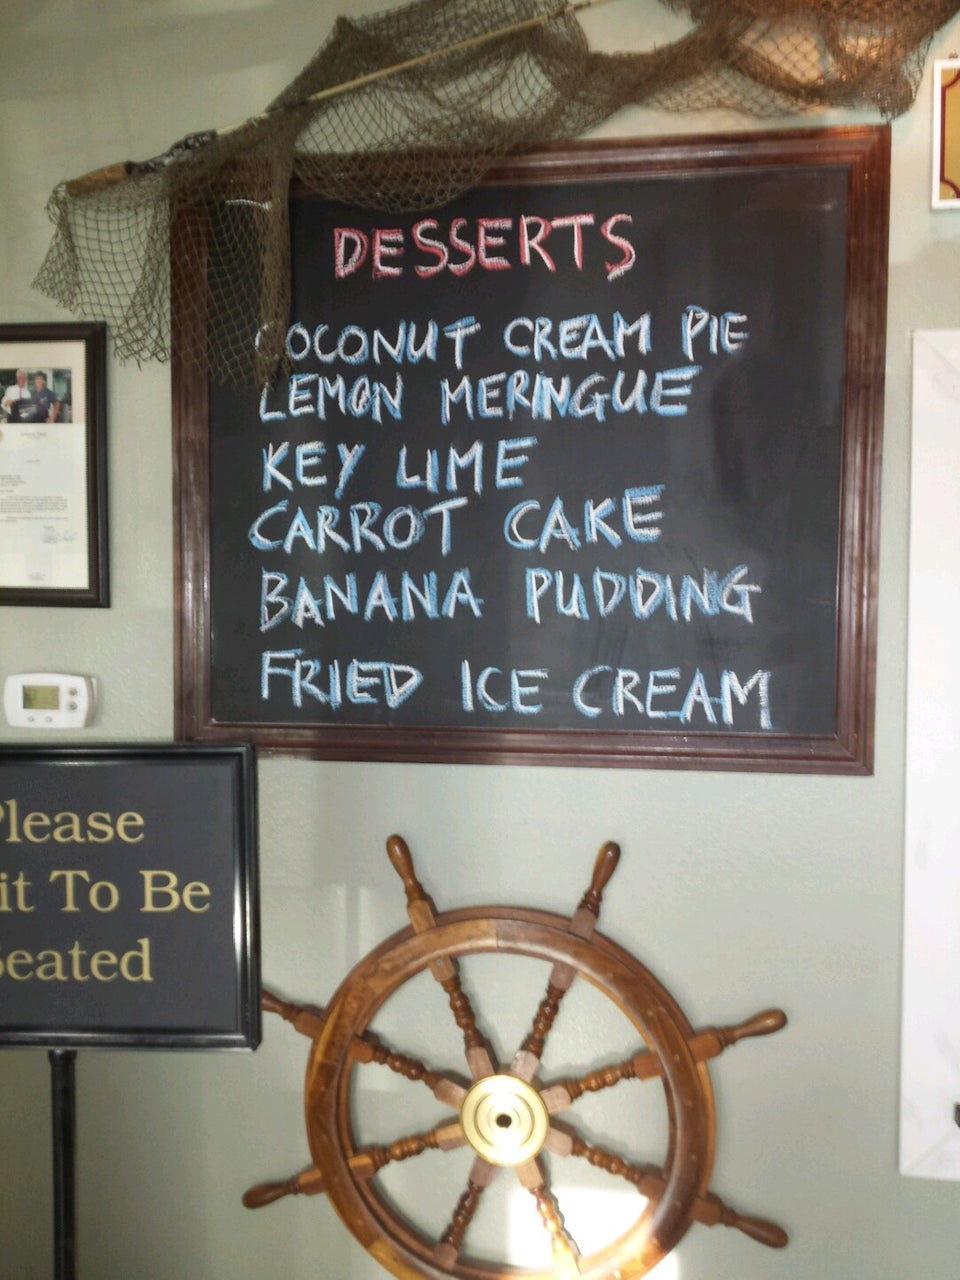 DESSERTS
COCONUT CREAM PIE
LEMON MERINGUE
KEY LIME
CARROT CAKE
BANANA PUDDING
FRIED ICE CREAM
Please
it To Be
Seated